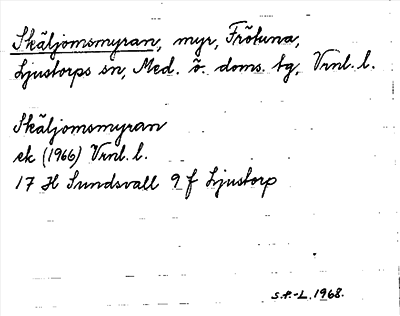 Skäljomsmyran, myr, Frötuna,
Ljustorps sn, Med. ö. doms. tg, Vrnl. l.
Skäljomsmyran
ek (1966) Vrnl. l.
17 H Sundsvall 9 f Ljustorp
S.F.-L. 1968.